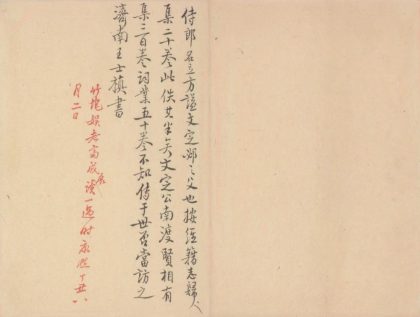 侍郎名立方諡文定邲之父也按經籍志歸愚
集二十卷此佚其半矣文定公南渡賢相有
集二百卷詞業五十卷不知傳于世否當訪之
濟南王士禛書
竹垞娛老齋展讀一過時康熙丁丑八
月二日